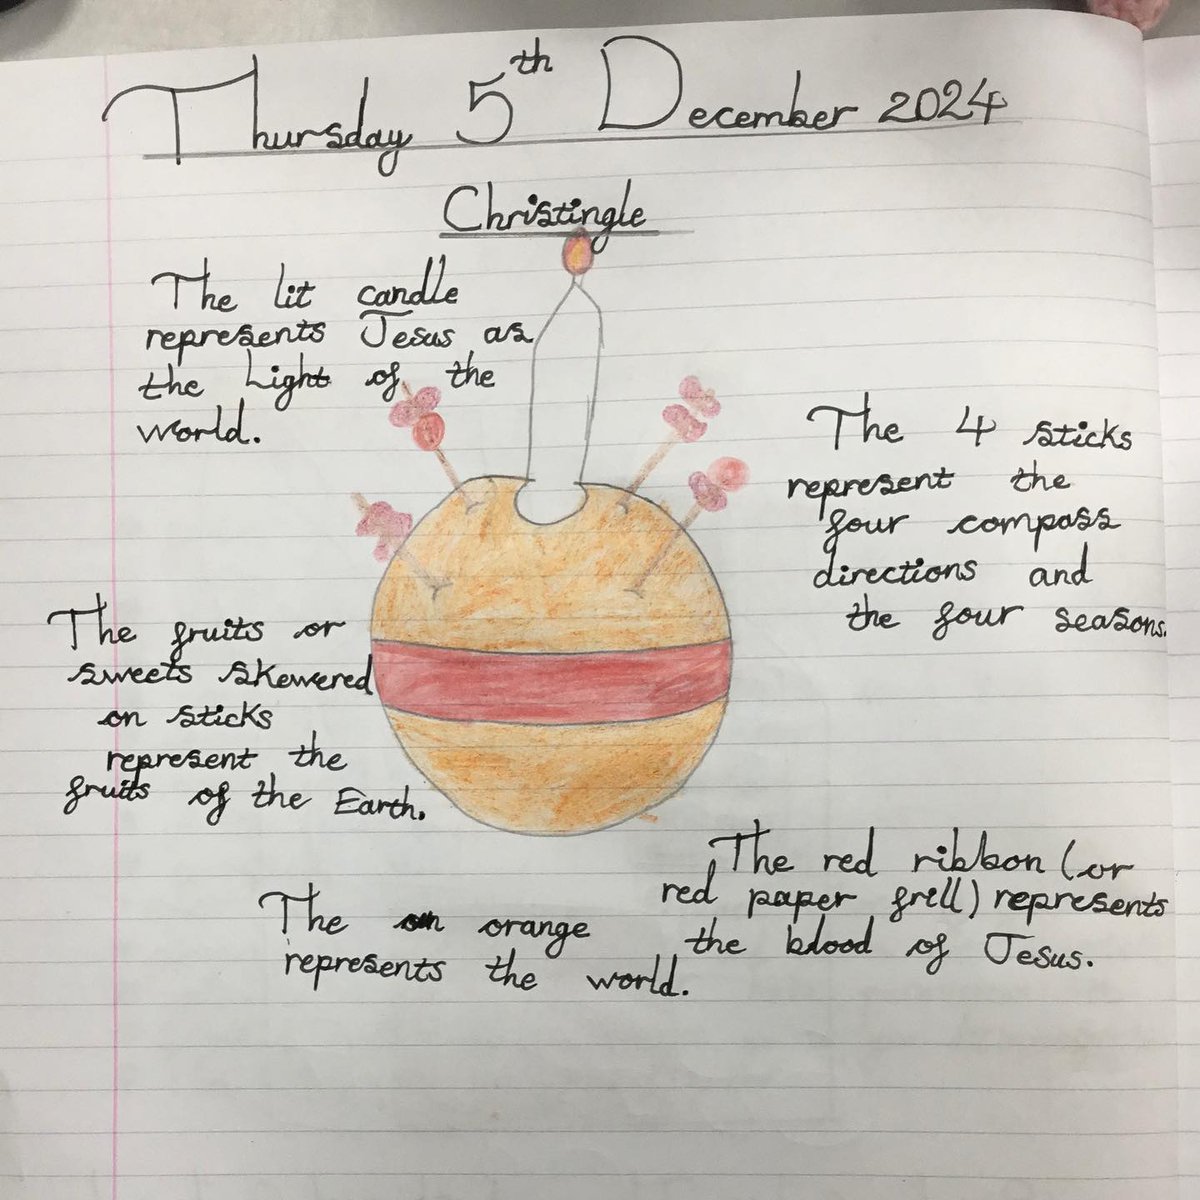 Thursday 5th December 2024
Christingle
The lit candle
represents Jesus as
the Light of the
world.
The 4 sticks
represent the
four compass
directions and
the four seasons.
The fruits or
sweets skewered
on sticks
represent the
fruits of the Earth.
The red ribbon (or
red paper frill) represents
the blood of Jesus.
The orange
represents the world.